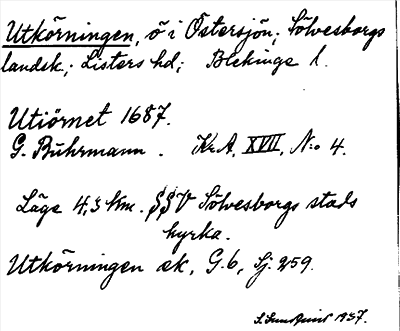 Utkörningen, ö i Östersjön; Sölvesborgs
landsk.; Listers hd; Blekinge l.
Utiörnet 1687.
G. Buhrmann. Kr.A. XVII, N:o 4.
Läge 4,3 km. SSV Sölvesborgs stads
kyrka.
Utkörningen ek, G.6, Sj. 259.
1937.